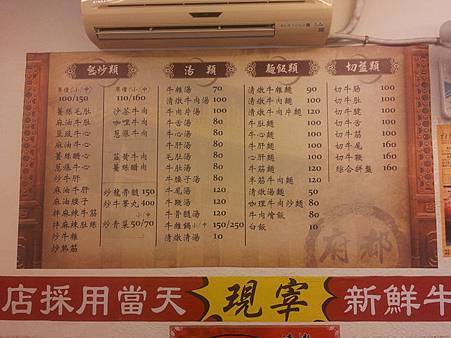 熱炒類
單價(小/中
100/150
薑絲毛肚
麻油牛肚
豆豉牛心
麻油牛心
薑絲醋心
炒牛肝
麻油牛肝
麻油腰子
拌麻辣牛筋
拌麻辣肚絲
炒牛雜
炒熟筋
單價(小/中
110/160
沙茶牛肉
咖哩牛肉
蔥爆牛肉
蔥爆牛心
炒龍骨髓 150
炒牛睪丸 400
小/中
炒青菜 50/70
湯 類
牛雜湯 70
清燉牛肉湯 100
牛肉片湯 100
牛肚湯 80
牛心湯 80
牛肝湯 80
毛肚湯 80
牛腰子湯 80
牛尾湯 120
牛鞭湯 120
牛骨髓湯 120
牛雜鍋 小/中 150/250
清燉清湯 10
麵飯類
清燉牛雜麵 90
清燉牛肉麵 100
清燉牛肉片麵 100
牛肚麵 100
牛心麵 100
牛肝麵 100
毛肚麵 100
牛筋麵 120
牛筋牛肉麵 120
清燉湯麵 50
咖哩牛肉炒麵 80
牛肉燴飯 80
白飯 10
切盤類
切牛腸 100
切牛肚 100
切牛腱 100
切牛舌 100
切牛筋 100
切牛尾 160
切牛鞭 160
綜合拼盤 160
府都
店採用當天 現宰 新鮮牛